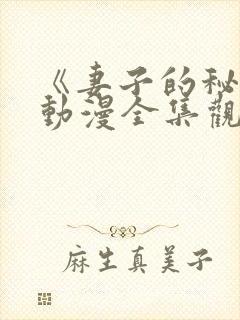 《妻子的秘
動漫全集觀
麻生真美子